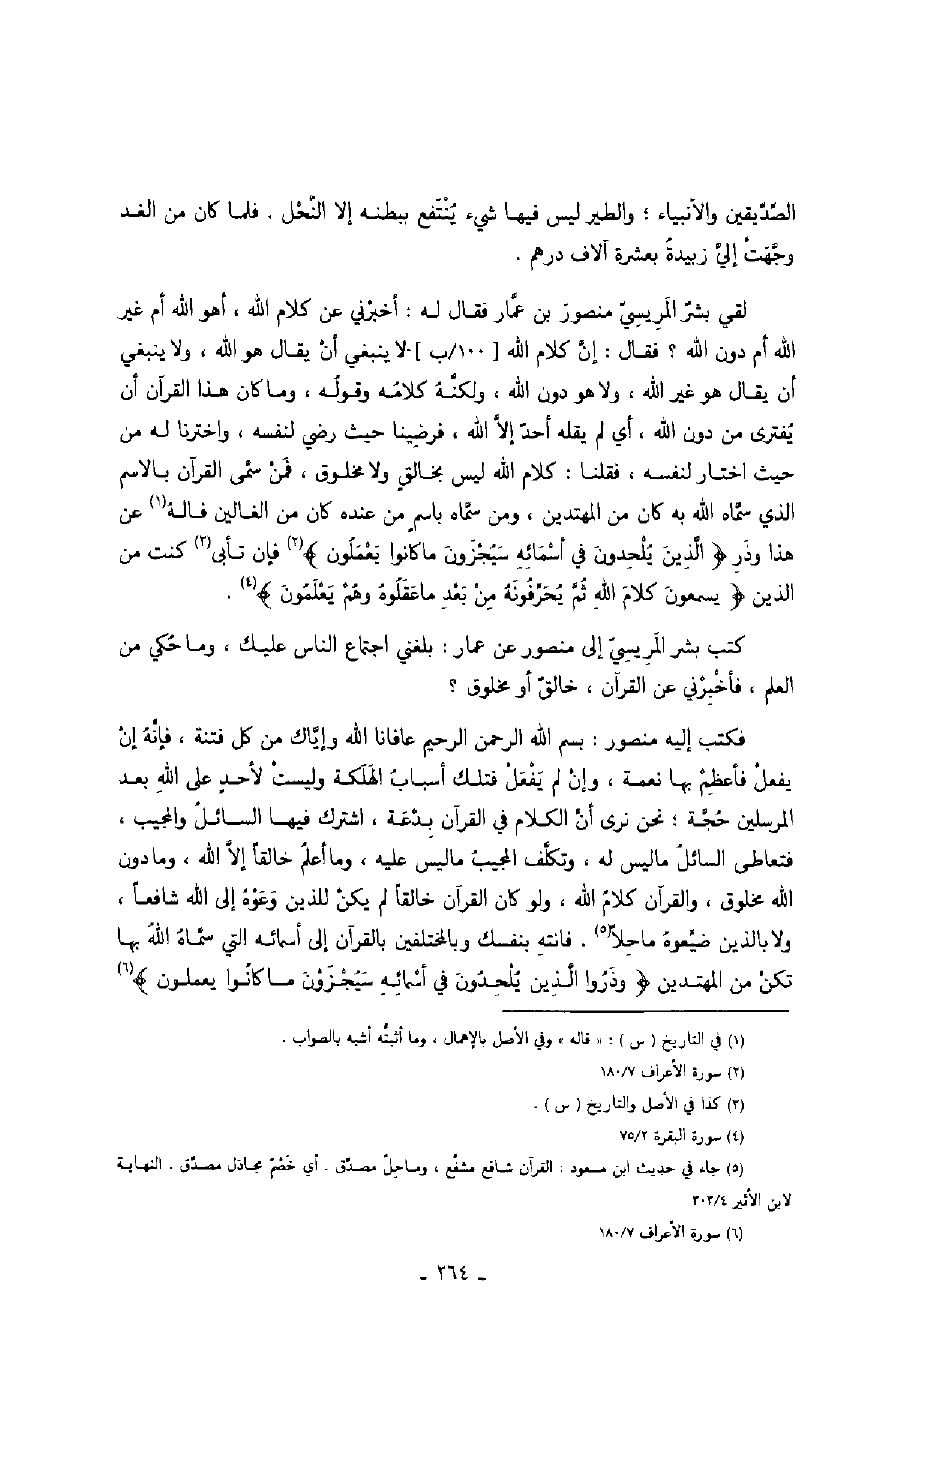 الصِّدِّيقين والأنبياء ؛ والطير ليس فيها شيء يُنْتَفع ببطنه إلا النَّحْل . فلما كان من الغد
وجَّهَتْ إليَّ زبيدةُ بعشرة آلاف درهم .
لقي بشرٌ المَرِيسيّ منصورَ بن عمَّار فقال له : أخبرْني عن كلام الله ، أهو الله أم غير
الله أم دون الله ؟ فقال : إنّ كلام الله [ ١٠٠/ب ] لا ينبغي أنْ يقال هو الله ، ولا ينبغي
أن يقال هو غير الله ، ولا هو دون الله ، ولكنَّهُ كلامُه وقولُه ، وما كان هذا القرآن أن
يُفترى من دون الله ، أي لم يقله أحدٌ إلاَّ الله ، فرضِينا حيث رضي لنفسه ، واخترنا له من
حيث اختار لنفسه ، فقلنا : كلام الله ليس بخالقٍ ولا مخلوق ، فَمَنْ سمَّى القرآن بالاسم
الذي سمَّاه الله به كان من المهتدين ، ومن سمَّاه باسمٍ من عنده كان من الغالين فالهُ(١) عن
هذا وذَرِ ﴿ الَّذِينَ يُلْحِدونَ في أسْمَائِهِ سَيُجْزَونَ ماكانوا يَعْمَلُون ﴾(٢) فإن تأبى(٣) كنت من
الذين ﴿ يسمعونَ كلامَ اللهِ ثُمَّ يُحَرِّفُونَهُ مِنْ بَعْدِ ماعَقَلُوهُ وهُمْ يَعْلَمُونَ ﴾(٤) .
كتب بشر المَرِيسيّ إلى منصور عن عمار : بلغني اجتماع الناس عليك ، وما حُكي من
العلم ، فأخْبِرْني عن القرآن ، خالقٌ أو مخلوق ؟
فكتب إليه منصور : بسم الله الرحمن الرحيم عافانا الله وإيَّاك من كل فتنة ، فإنَّهُ إنْ
يفعلْ فأعظِمْ بها نعمة ، وإنْ لم يَفْعَلْ فتلك أسبابُ الهَلَكة وليستْ لأحدٍ على اللهِ بعد
المرسلين حُجَّة ؛ نحن نرى أنّ الكلام في القرآن بِدْعَة ، اشترك فيها السائلُ والمجيب ،
فتعاطى السائلُ ماليس له ، وتكلَّف المجيبُ ماليس عليه ، وما أعلمُ خالقاً إلاَّ الله ، ومادون
الله مخلوق ، والقرآن كلامُ الله ، ولو كان القرآن خالقاً لم يكنْ للذين وَعَوْهُ إلى الله شافعاً ،
ولا بالذين ضيَّعوهُ ماحِلاً(٥) . فانتهِ بنفسك وبالمختلفين بالقرآن إلى أسمائه التي سمَّاهُ اللهُ بها
تكنْ من المهتدين ﴿ وذَرُوا الَّذِين يُلْحِدُونَ في أسْمائِهِ سَيُجْزَوْنَ ماكانُوا يعملون ﴾(٦)
(١) في التاريخ ( س ) : « قاله » وفي الأصل بالإهمال ، وما أثبتُّه أشبه بالصواب .
(٢) سورة الأعراف ١٨٠/٧
(٣) كذا في الأصل والتاريخ ( س ) .
(٤) سورة البقرة ٧٥/٢
(٥) جاء في حديث ابن مسعود : القرآن شافع مشفَّع ، وماحِلٌ مصدَّق . أي خَصْمٌ مجادل مصدَّق . النهاية
لابن الأثير ٣٠٣/٤
(٦) سورة الأعراف ١٨٠/٧
- ٢٦٤ -